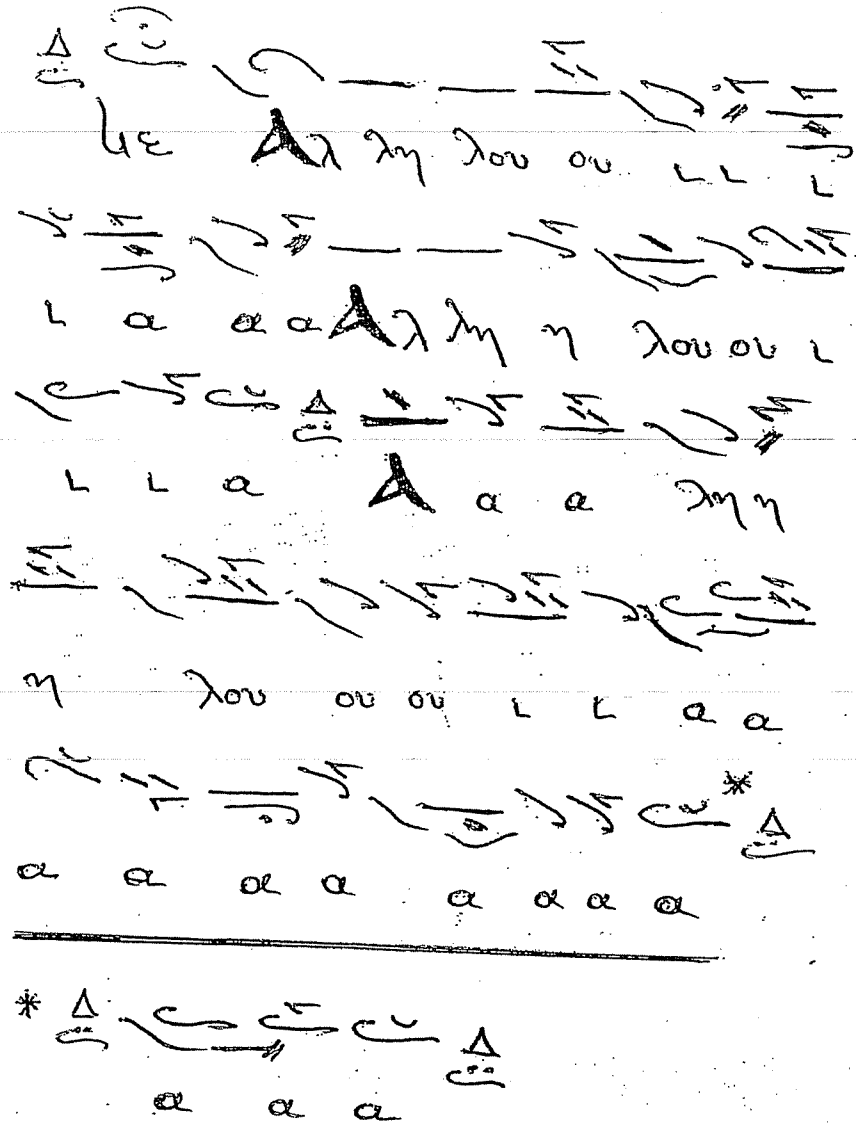 Δ
νε Αλ λη λου ου ι ι ι
ι α α α Αλ λη η λου ου ι
Δ
ι ι α Α α α λη η
η λου ου ου ι ι α α
* Δ
α α α α α α α α
* Δ Δ
α α α